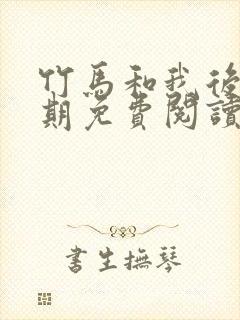 竹馬和我後
期免費閱讀
書生撫琴